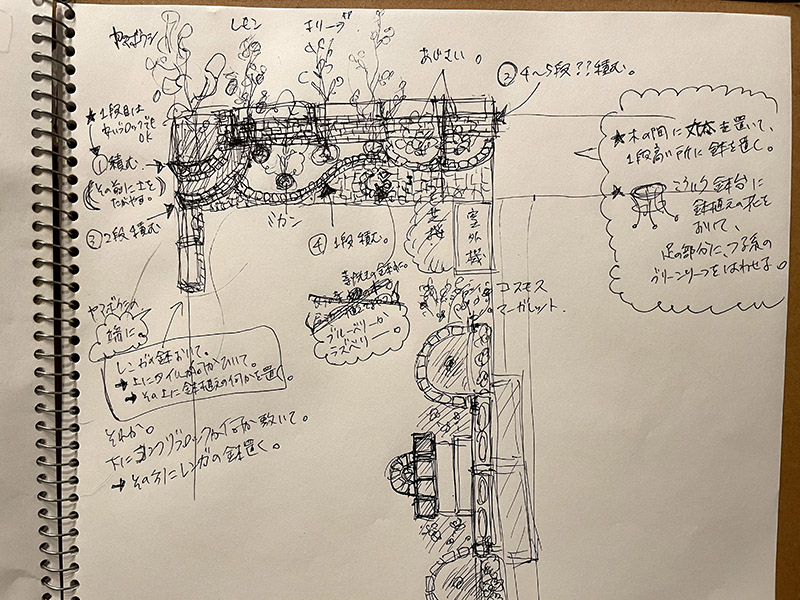 ヤマボウシ
レモン
オリーブ
あじさい。
★1段目は
安いブロックでも
OK
①1積む。
(その前に土を
たがやす。)
③2段積む
②4〜5段??積む。
★木の間に
を置いて、
1段高い所に鉢を置く。
★ミニテーブル 鉢台に
鉢植えの花を
おいて、
足の部分に、つる系の
グリーンリーフをはわせる。
ビカン
④1段積む。
芝桜
室外機
コスモス
マーガレット.
ブルーベリーか
ラズベリー。
ヤマボウシの
端に。
レンガの鉢おいて。
→上にタイルか何かひいて。
→その上に鉢植えの何かを置く。
それか。
下にコンクリブロックか何か敷いて。
→その上にレンガの鉢置く。